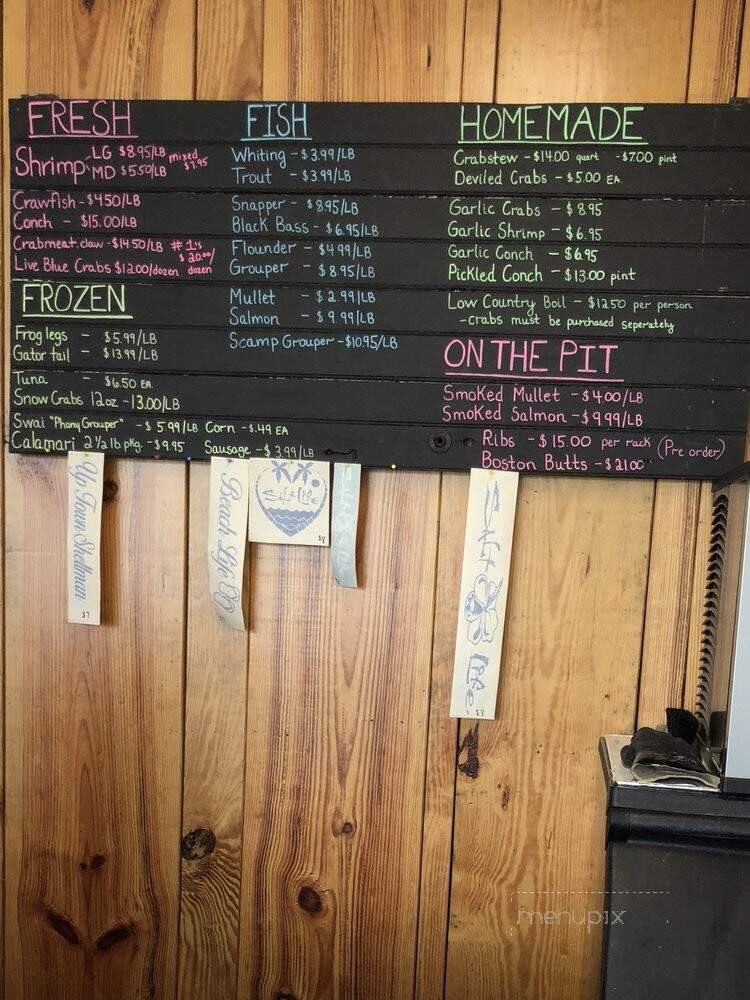 FRESH
Shrimp LG $8.95/LB mixed
MD $5.50/LB $7.95
Crawfish - $4.50/LB
Conch - $15.00/LB
Crabmeat.claw - $14.50/LB #1's
$20.00/
Live Blue Crabs $12.00/dozen dozen
FROZEN
Frog legs - $5.99/LB
Gator tail - $13.99/LB
Tuna - $6.50 EA.
Snow Crabs 12oz - 13.00/LB
Swai "Phony Grouper" - $5.99/LB Corn - $.49 EA
Calamari 2 1/2 lb pkg. - $9.95 Sausage - $3.99/LB
FISH
Whiting - $3.99/LB
Trout - $3.99/LB
Snapper - $8.95/LB
Black Bass - $6.95/LB
Flounder - $4.99/LB
Grouper - $8.95/LB
Mullet - $2.99/LB
Salmon - $9.99/LB
Scamp Grouper - $10.95/LB
HOMEMADE
Crabstew - $14.00 quart - $7.00 pint
Deviled Crabs - $5.00 EA.
Garlic Crabs - $8.95
Garlic Shrimp - $6.95
Garlic Conch - $6.95
Pickled Conch - $13.00 pint
Low Country Boil - $12.50 per person
- crabs must be purchased seperately
ON THE PIT
Smoked Mullet - $4.00/LB
Smoked Salmon - $9.99/LB
Ribs - $15.00 per rack (Pre order)
Boston Butts - $21.00
Up Town Shellman
$7
Beach Life
Salt Life
$8
Salt Life
$8
menupix